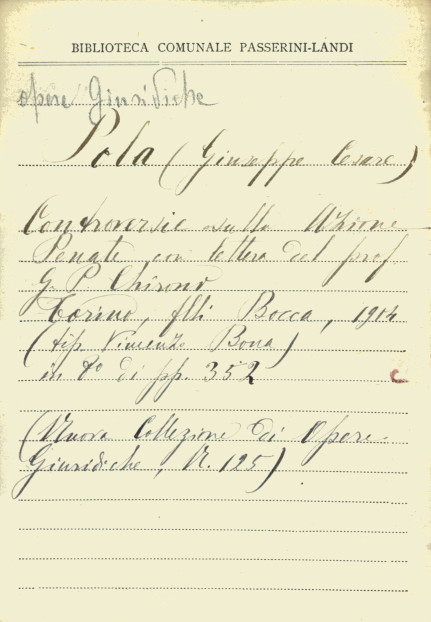 BIBLIOTECA COMUNALE PASSERINI-LANDI
opere Giuridiche
Pola (Giuseppe Cesare)
Controversie sulla Azione
Penale con lettera del prof.
G. P. Chironi
Torino, flli Bocca, 1914
(tip. Vincenzo Bona)
in 8º di pp. 352
(Nuova Collezione di Opere
Giuridiche, N. 125)